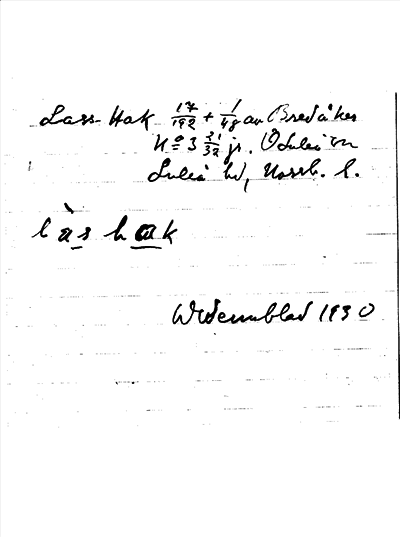 Lass-Hak 17/192 + 1/48 av Bredåker
No 3 21/32 jr. Ö Luleå sn
Luleå hd, Norrb. l.
làs hak
Widenmblad 1930